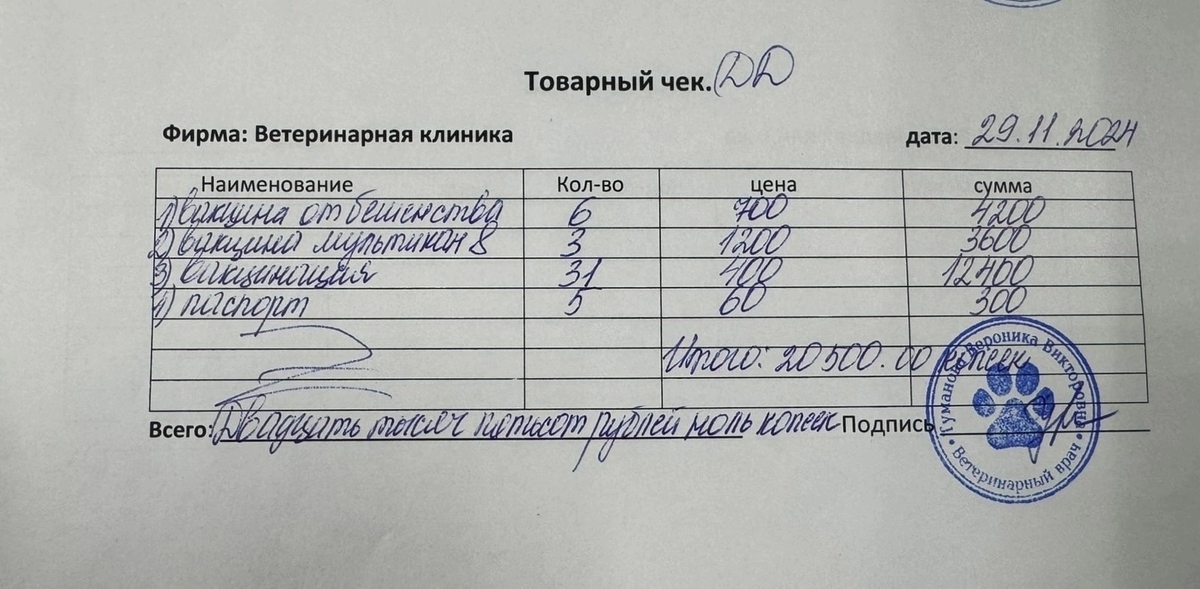 Товарный чек.
Фирма: Ветеринарная клиника дата: 29.11.2024
Наименование Кол-во цена сумма
1) вакцина от бешенства 6 700 4200
2) вакцина мультикан 8 3 1200 3600
3) вакцинация 31 400 12400
4) паспорт 5 60 300
Итого: 20500.00 копеек
Всего: Двадцать тысяч пятьсот рублей ноль копеек Подпись
Гуманова Вероника Викторовна
• Ветеринарный врач •